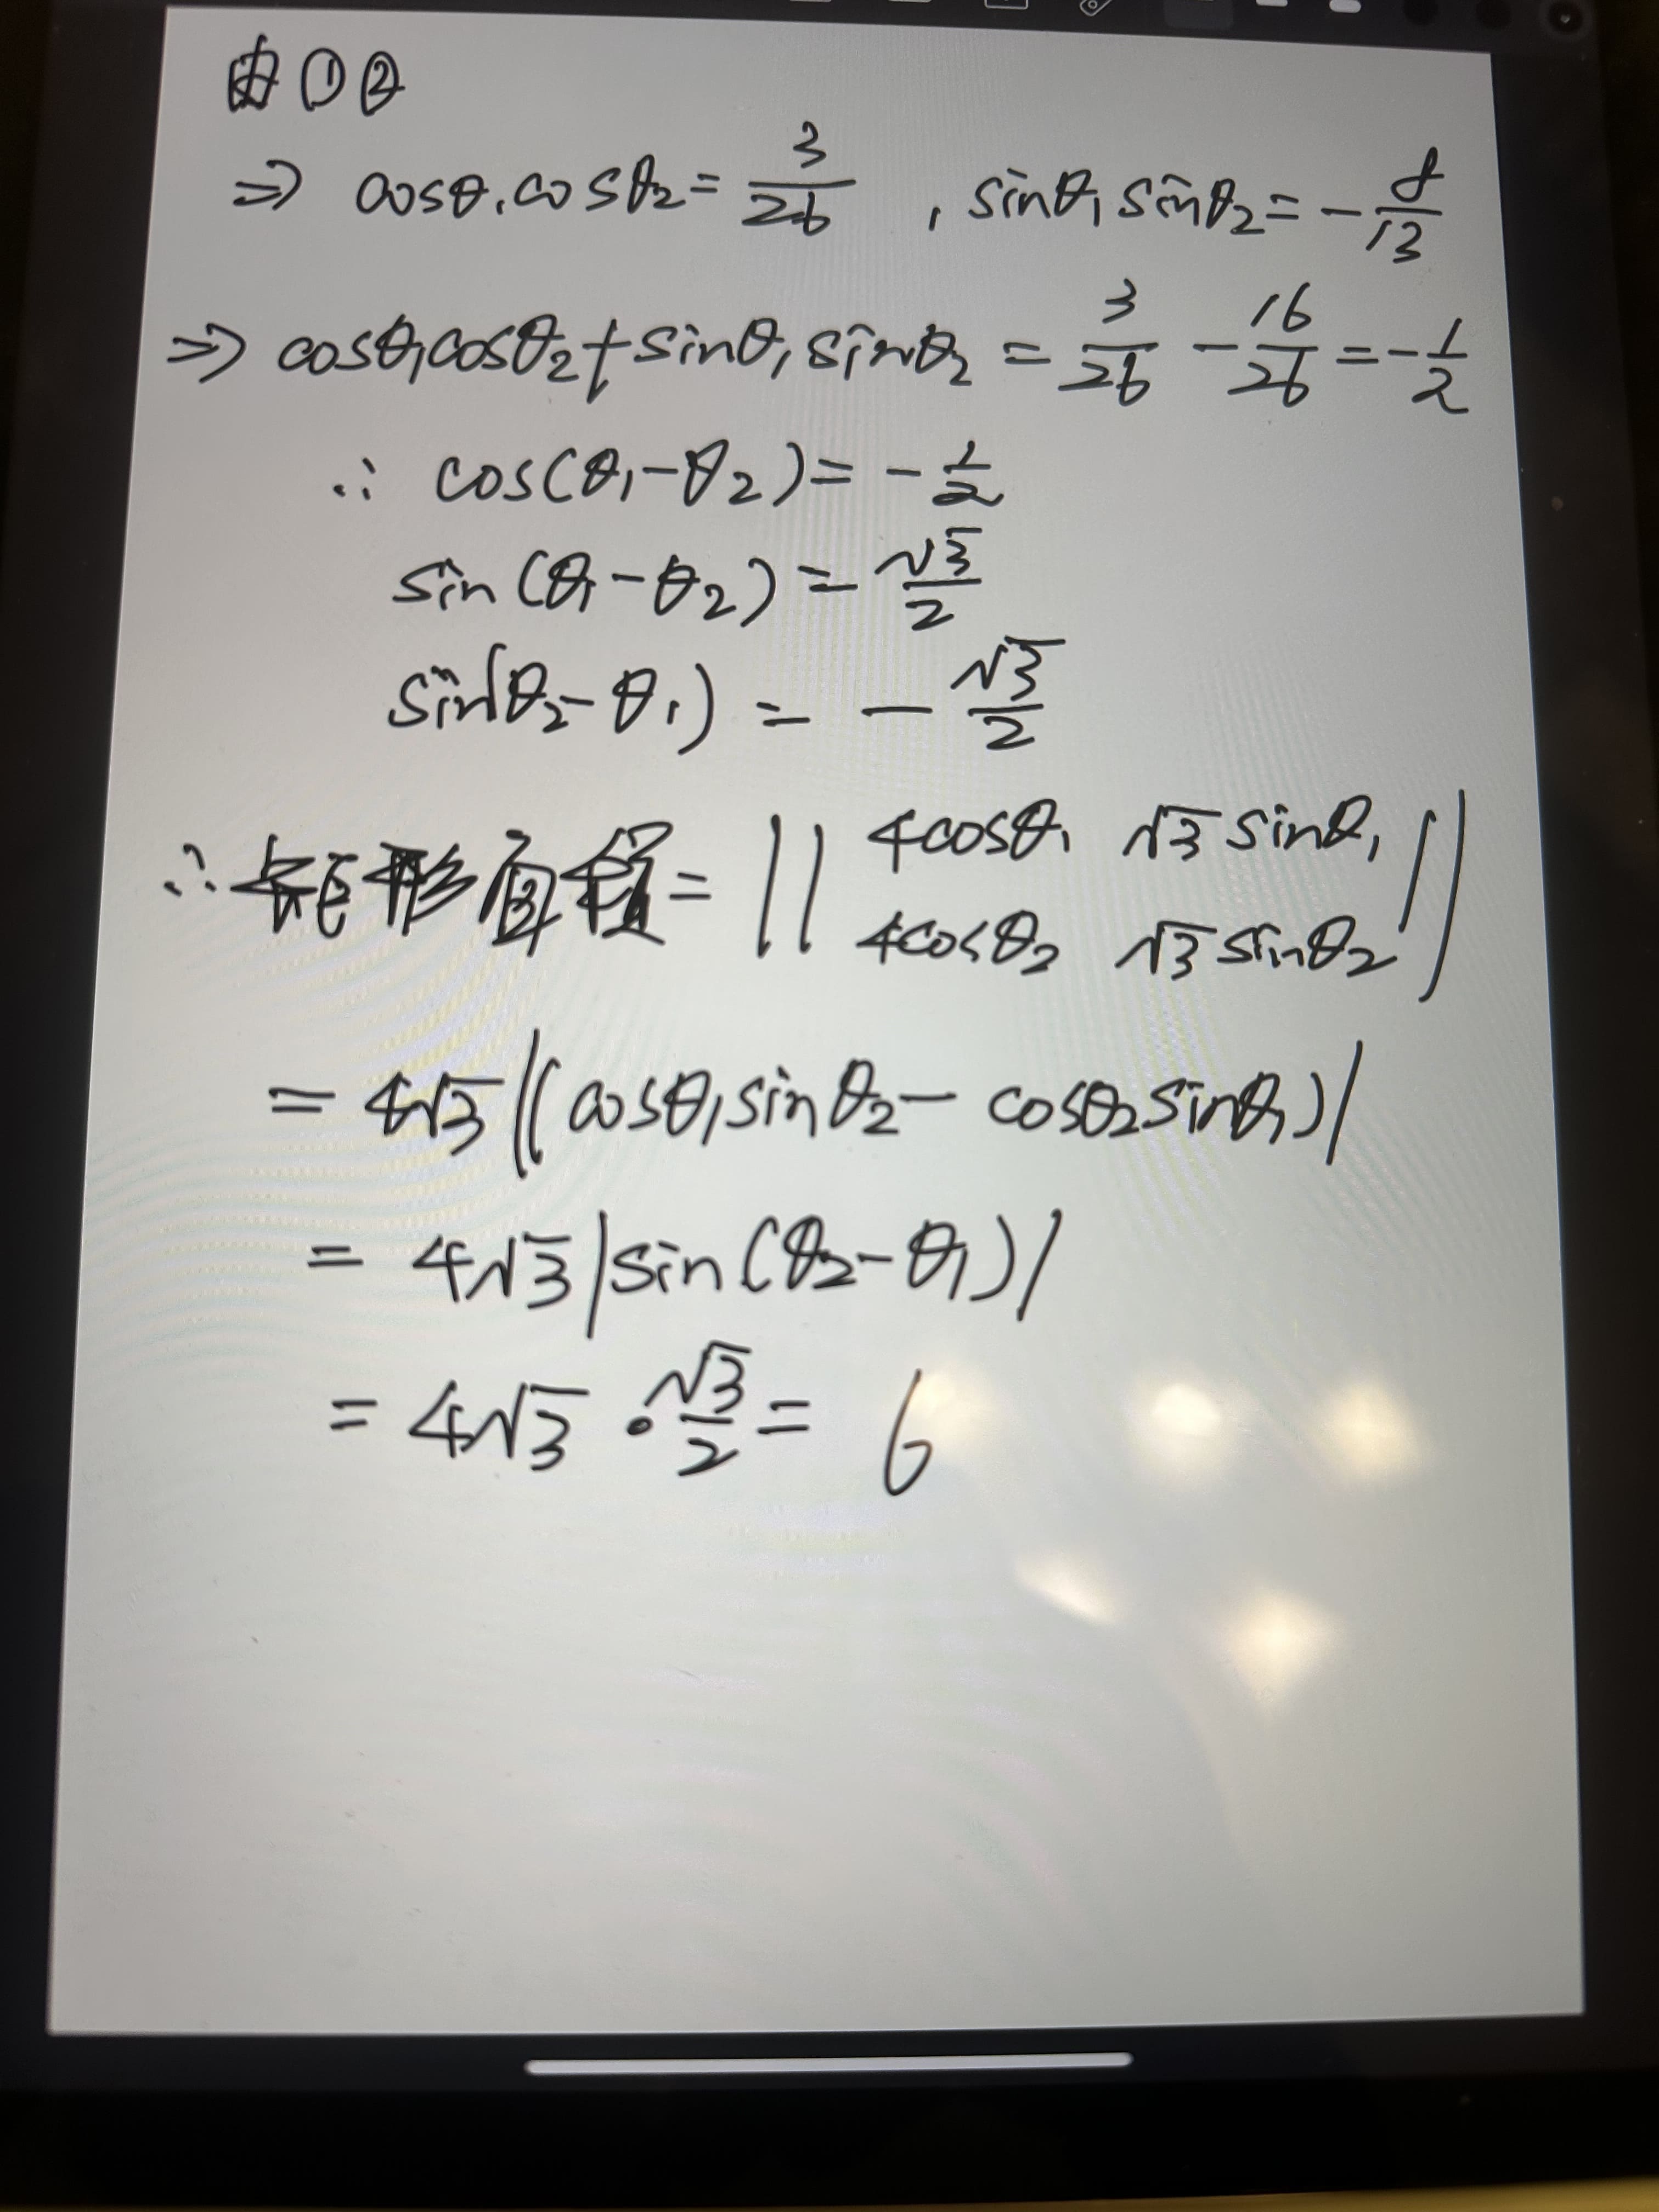 由①②
⇒ cosθ₁cosθ₂ = 3/26 , sinθ₁sinθ₂ = -8/13
⇒ cosθ₁cosθ₂ + sinθ₁sinθ₂ = 3/26 - 16/26 = -1/2
∴ cos(θ₁-θ₂) = -1/2
sin(θ₁-θ₂) = √3/2
sin(θ₂-θ₁) = -√3/2
∴矩形面積 = || 4cosθ₁ √3sinθ₁
4cosθ₂ √3sinθ₂ ||
= 4√3|(cosθ₁sinθ₂ - cosθ₂sinθ₁)|
= 4√3|sin(θ₂-θ₁)|
= 4√3 • √3/2 = 6